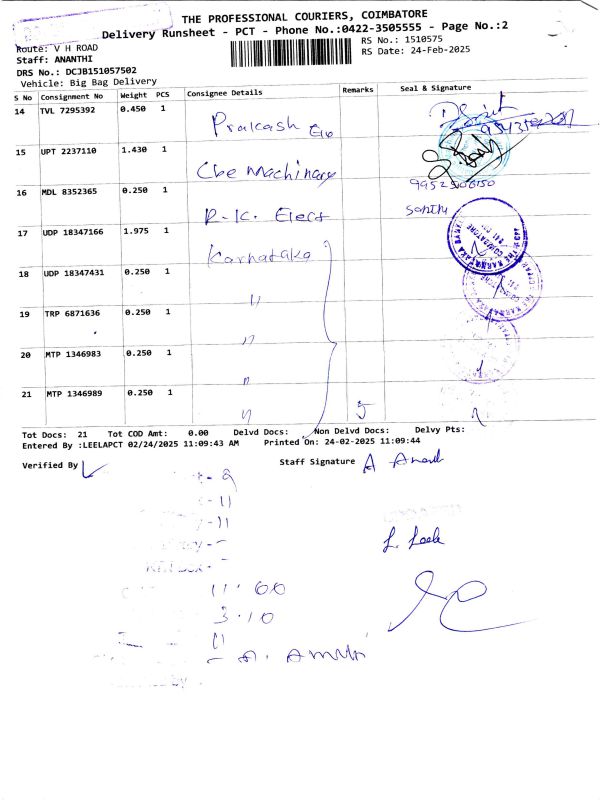 THE PROFESSIONAL COURIERS, COIMBATORE
Delivery Runsheet - PCT - Phone No.:0422-3505555 - Page No.:2
Route: V H ROAD
RS No.: 1510575
Staff: ANANTHI
RS Date: 24-Feb-2025
DRS No.: DCJB151057502
Vehicle: Big Bag Delivery
S No Consignment No Weight PCS Consignee Details Remarks Seal & Signature
14 TVL 7295392 0.450 1 Prakash
15 UPT 2237110 1.430 1 Cbe Machinary
16 MDL 8352365 0.250 1 R.K. Elect Santhi
17 UDP 18347166 1.975 1 Karnataka
18 UDP 18347431 0.250 1 "
19 TRP 6871636 0.250 1 "
20 MTP 1346983 0.250 1 "
21 MTP 1346989 0.250 1 " 5
Tot Docs: 21 Tot COD Amt: 0.00 Delvd Docs: Non Delvd Docs: Delvy Pts:
Entered By :LEELAPCT 02/24/2025 11:09:43 AM Printed On: 24-02-2025 11:09:44
Verified By Staff Signature A Ananth
- 11
- 11
L. Leela
11.00
3.10